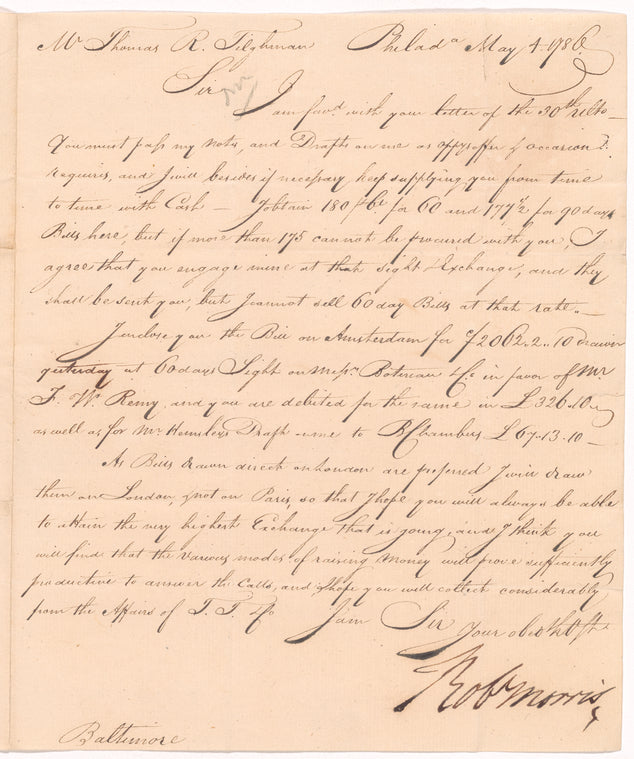 Mr Thomas R. Tilghman Philad.a May 4. 1786
Sir
I am fav.d with your letter of the 30th ulto —
You must pass my Notes, and Drafts on me as opp.s offer & occasion
requires, and I will besides if necessary keep supplying you from time
to time with Cash — I obtain 180 for 60 and 177½ for 90 days
Bills here, but if more than 175 cannot be procured with you, I
agree that you engage mine at that sight & Exchange, and they
shall be sent you, but I cannot sell 60 day Bills at that rate. —
I inclose you the Bill on Amsterdam for ƒ2062..2..10 drawn
yesterday at 60 days Sight on Mess.rs &C.o in favor of Mr
F. W. Remy, and you are debited for the same in £326.10.
as well as for Mr Hemsley's Draft on me to B Chambers £67-13-10 —
As Bills drawn direct on London are preferred I will draw
them on London, & not on Paris, so that I hope you will always be able
to attain the very highest Exchange that is going, and I think you
will find that the various modes of raising Money will prove sufficiently
productive to answer the Calls, and I hope you will collect considerably
from the Affairs of T. T. &Co I am Sir
Your obed.t h.ble S.t
Rob.t Morris
Baltimore